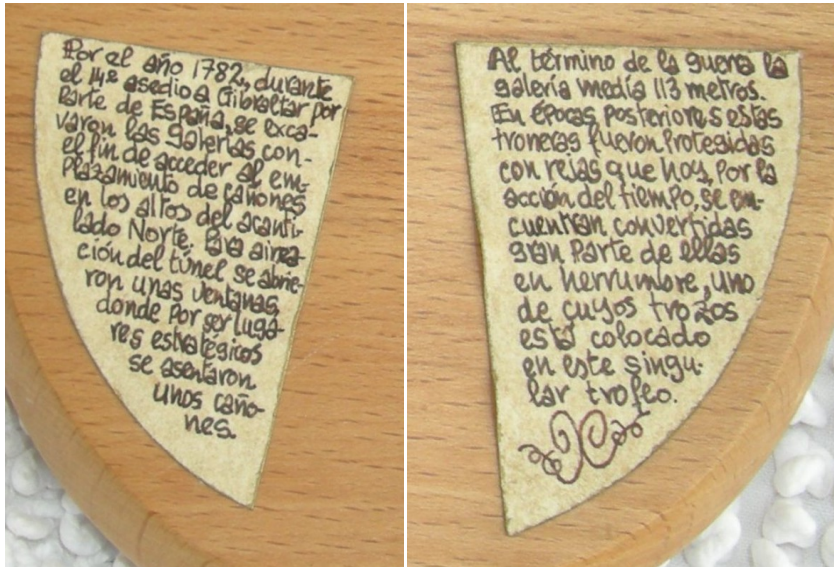 Por el año 1782, durante
el 14º asedio a Gibraltar por
parte de España, se exca-
varon las galerías con
el fin de acceder al em-
plazamiento de cañones
en los altos del acanti-
lado Norte. Para airea-
ción del túnel se abrie-
ron unas ventanas,
donde por ser luga-
res estratégicos
se asentaron
unos caño-
nes.
Al término de la guerra la
galería medía 113 metros.
En épocas posteriores estas
troneras fueron protegidas
con rejas que hoy, por la
acción del tiempo, se en-
cuentran convertidas
gran parte de ellas
en herrumbre, uno
de cuyos trozos
está colocado
en este singu-
lar trofeo.